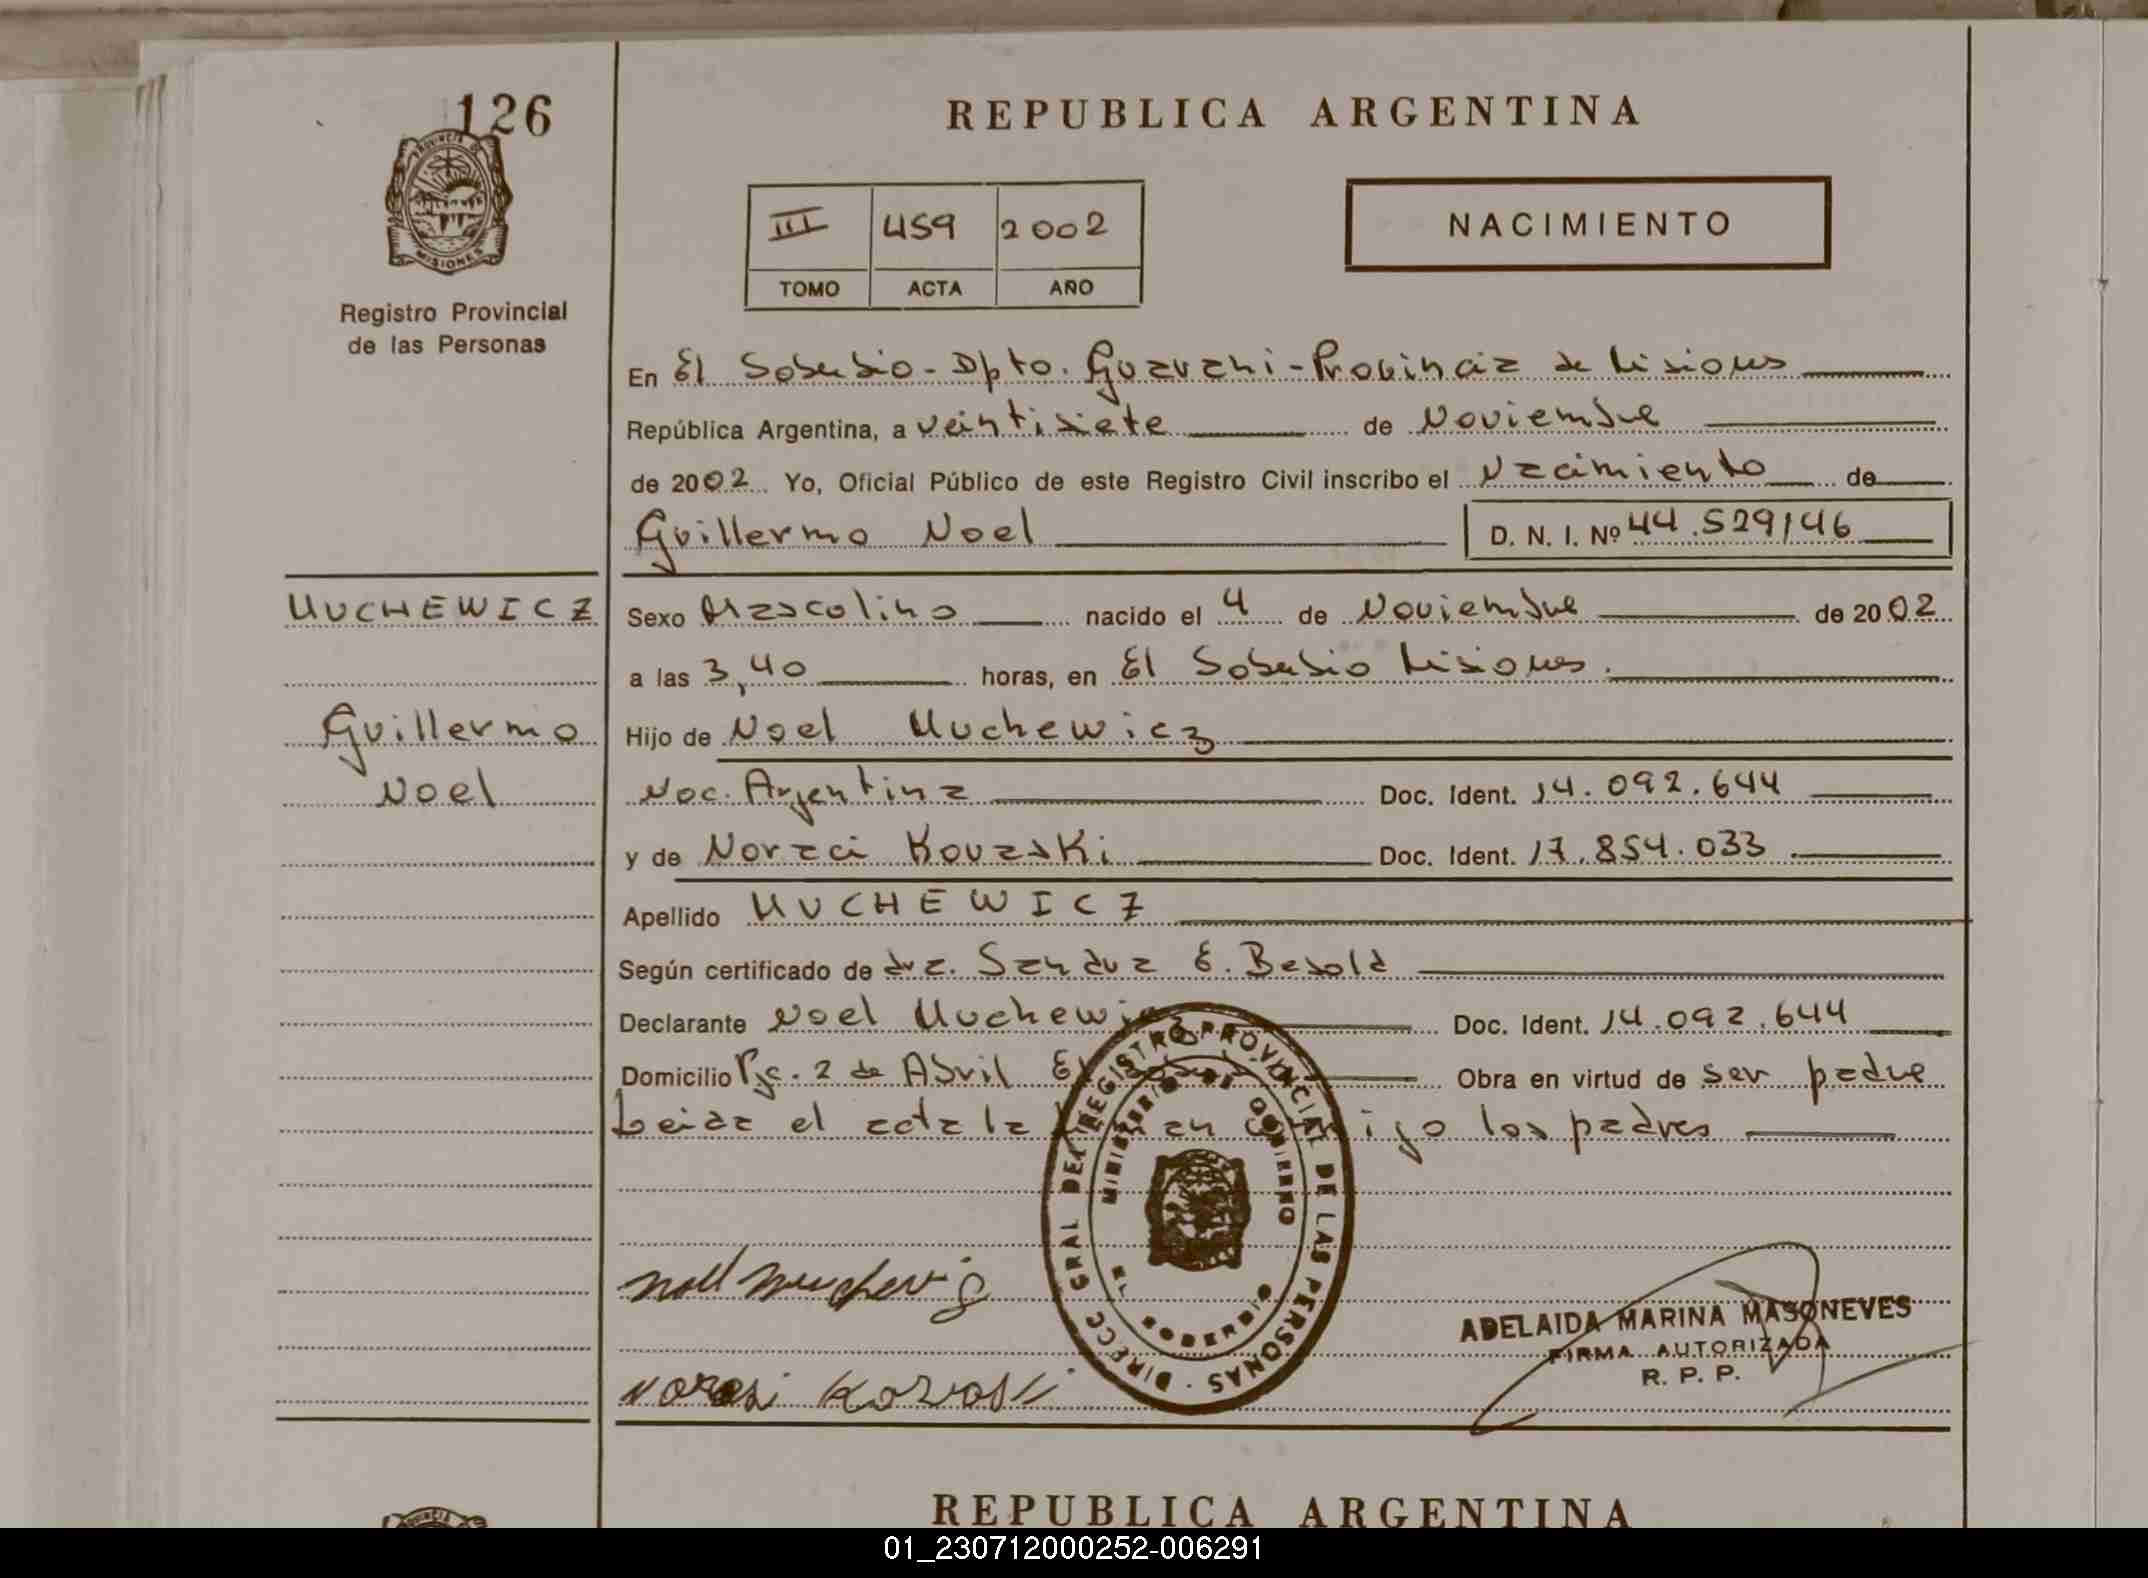 126
REPUBLICA ARGENTINA
PROVINCIA DE
MISIONES
III 459 2002
TOMO ACTA AÑO
NACIMIENTO
Registro Provincial
de las Personas
En El Soberbio - Dpto. Guarani - Provincia de Misiones
República Argentina, a veintisiete de Noviembre
de 2002 Yo, Oficial Público de este Registro Civil inscribo el Nacimiento de
Guillermo Noel D. N. I. Nº 44.529146
MUCHEWICZ
Sexo Masculino nacido el 4 de Noviembre de 2002
a las 3,40 horas, en El Soberbio Misiones.
Guillermo
Hijo de Noel Muchewicz
Noel
Nac. Argentina Doc. Ident. 14.092.644
y de Noraci Kovaski Doc. Ident. 17.854.033
Apellido MUCHEWICZ
Según certificado de dra. Sandra E. Besold
Declarante Noel Muchewicz Doc. Ident. 14.092.644
Domicilio Pje. 2 de Abril El Obra en virtud de ser padre
Leida el acta la los padres
DIRECC GRAL DEL REGISTRO PROVINCIAL DE LAS PERSONAS
MINISTERIO DE GOBIERNO
EL SOBERBIO
Noel Muchewicz
ADELAIDA MARINA MASONEVES
FIRMA AUTORIZADA
R. P. P.
Noraci Kovaski
REPUBLICA ARGENTINA
PROVINCIA
01_230712000252-006291